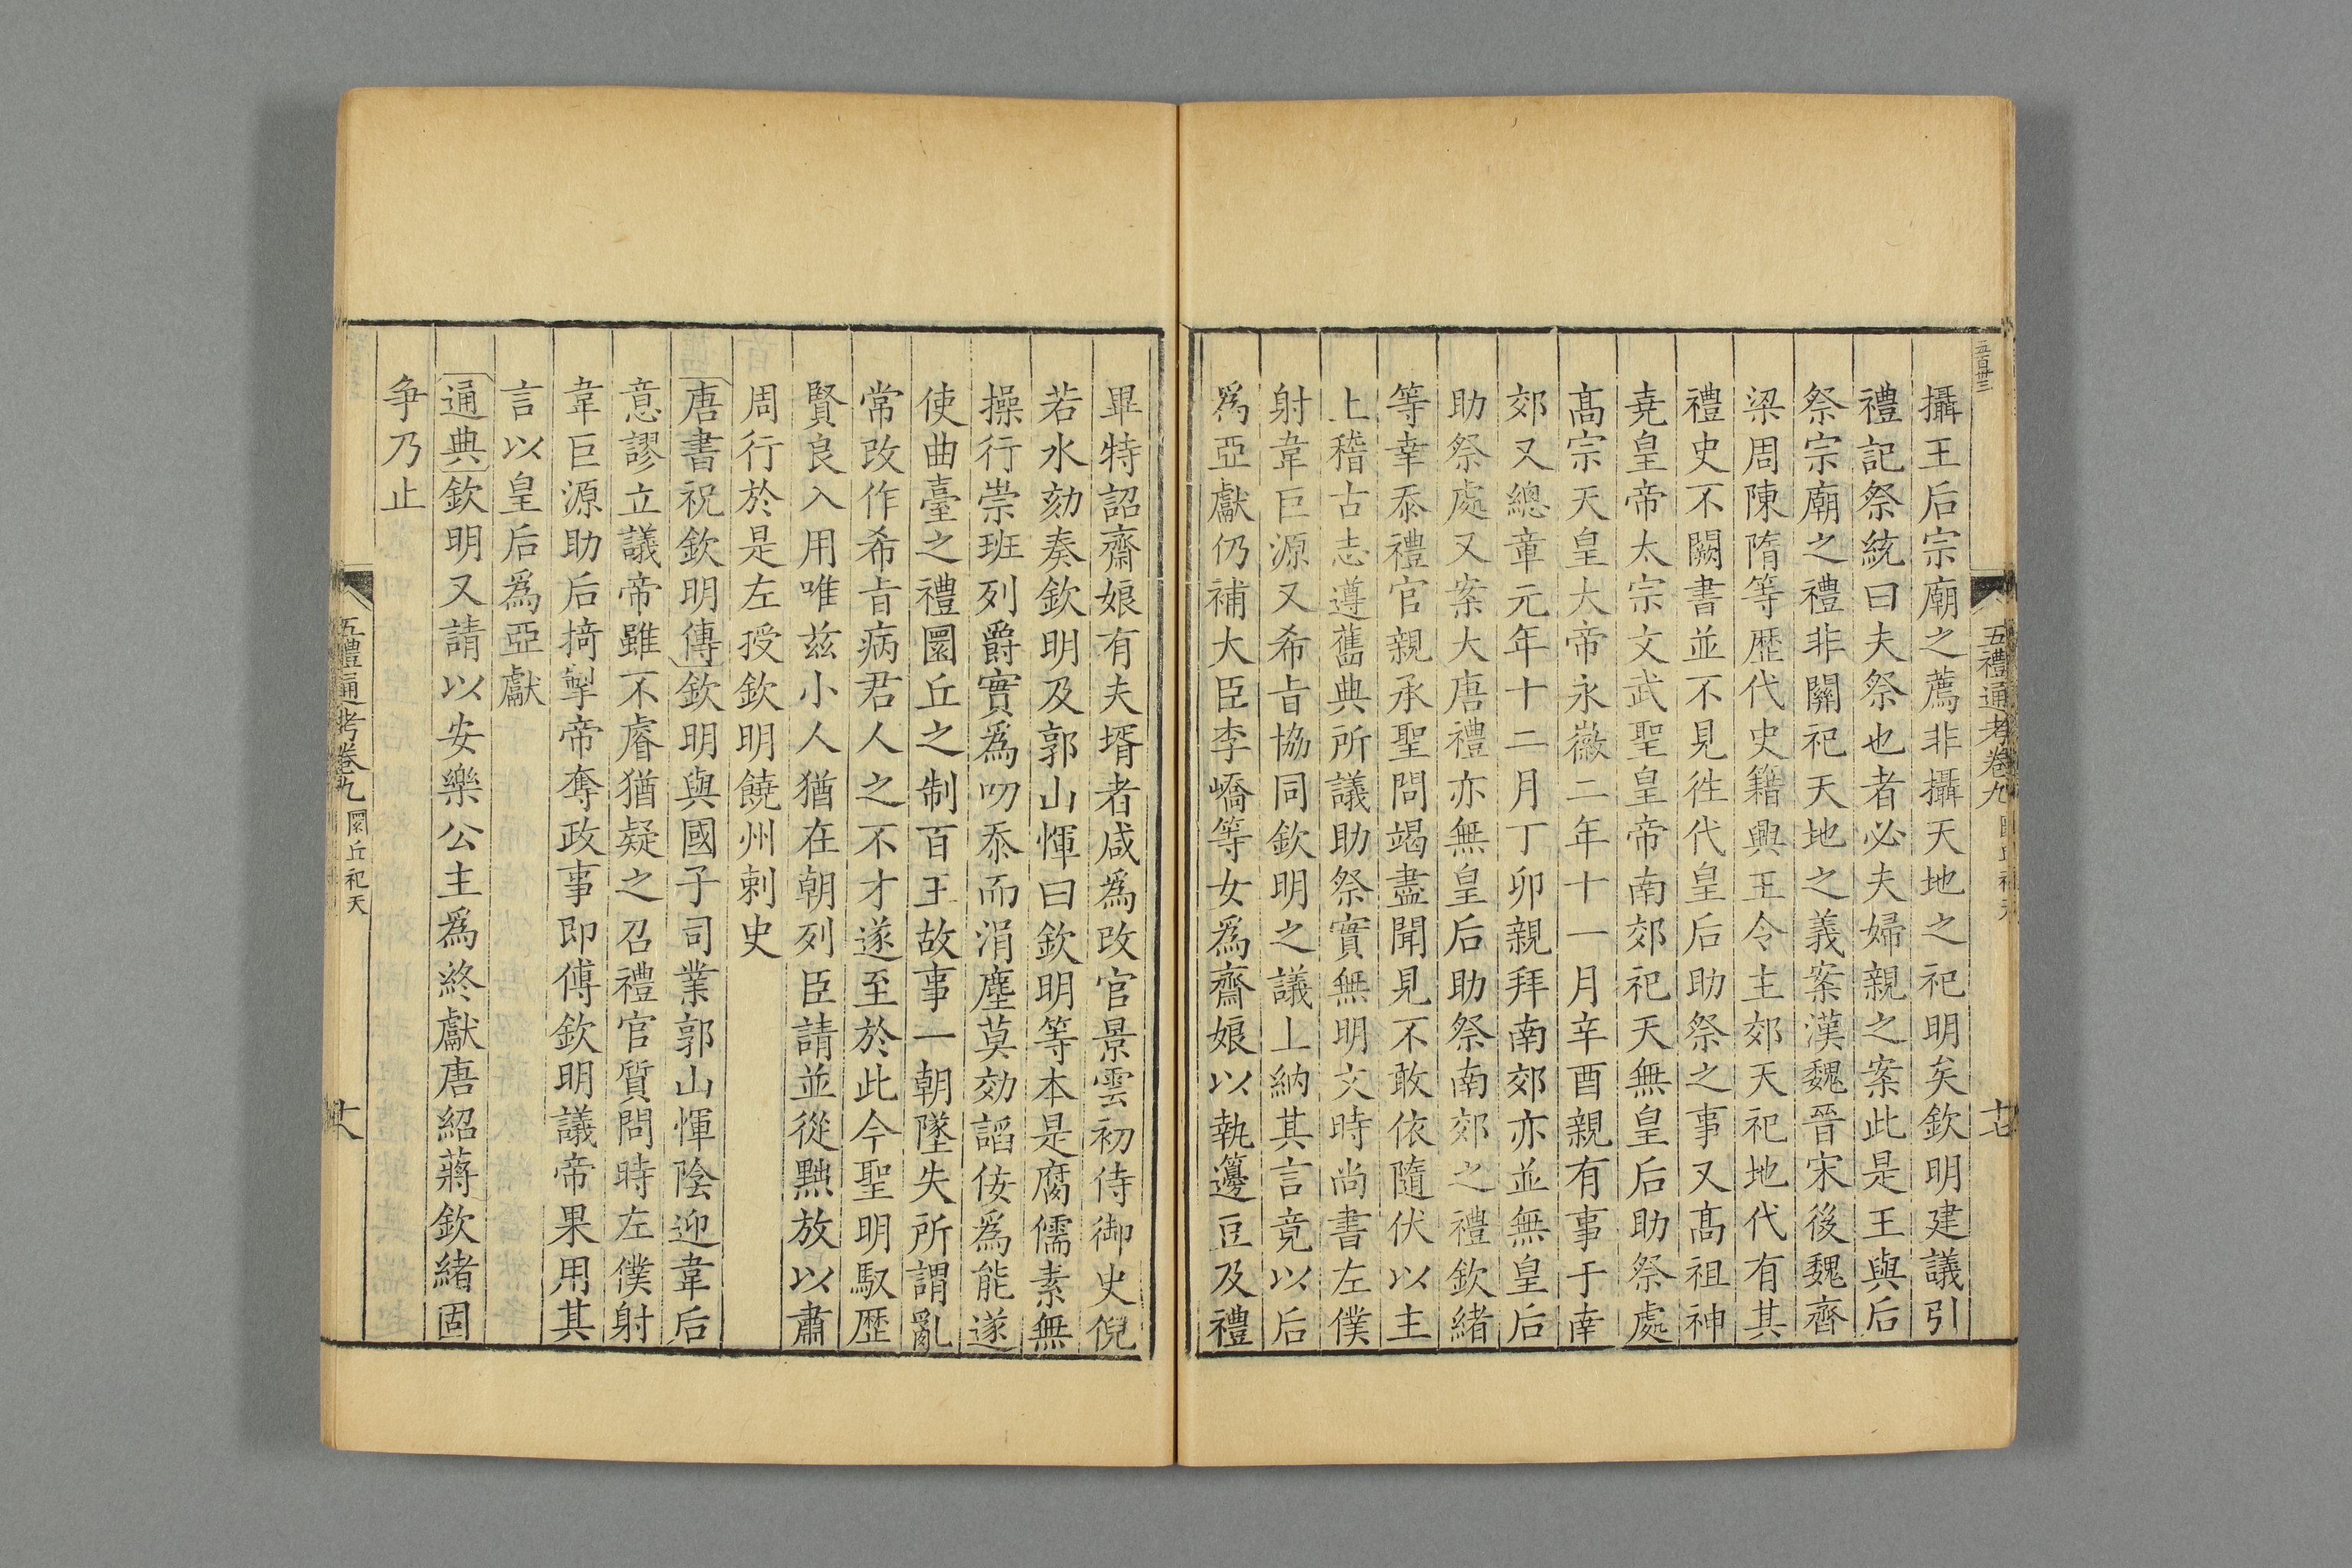 五百卅三
五禮通考卷九 圜丘祀天
十七
攝王后宗廟之薦非攝天地之祀明矣欽明建議引
禮記祭統曰夫祭也者必夫婦親之案此是王與后
祭宗廟之禮非關祀天地之義案漢魏晉宋後魏齊
梁周陳隋等歷代史籍興王令主郊天祀地代有其
禮史不闕書並不見徃代皇后助祭之事又髙祖神
堯皇帝太宗文武聖皇帝南郊祀天無皇后助祭處
髙宗天皇大帝永徽二年十一月辛酉親有事于南
郊又總章元年十二月丁卯親拜南郊亦並無皇后
助祭處又案大唐禮亦無皇后助祭南郊之禮欽緒
等幸忝禮官親承聖問竭盡聞見不敢依隨伏以主
上稽古志遵舊典所議助祭實無明文時尚書左僕
射韋巨源又希旨協同欽明之議上納其言竟以后
爲亞獻仍補大臣李嶠等女爲齋娘以執籩豆及禮
畢特詔齋娘有夫壻者咸爲改官景雲初侍御史倪
若水劾奏欽明及郭山惲曰欽明等本是腐儒素無
操行崇班列爵實爲叨忝而涓塵莫効謟佞爲能遂
使曲臺之禮圜丘之制百王故事一朝墜失所謂亂
常改作希旨病君人之不才遂至於此今聖明馭歷
賢良入用唯兹小人猶在朝列臣請並從黜放以肅
周行於是左授欽明饒州刺史
唐書祝欽明傳欽明與國子司業郭山惲陰迎韋后
意謬立議帝雖不睿猶疑之召禮官質問時左僕射
韋巨源助后掎掣帝奪政事即傅欽明議帝果用其
言以皇后爲亞獻
通典欽明又請以安樂公主爲終獻唐紹蔣欽緒固
争乃止
五禮通考卷九 圜丘祀天
十八